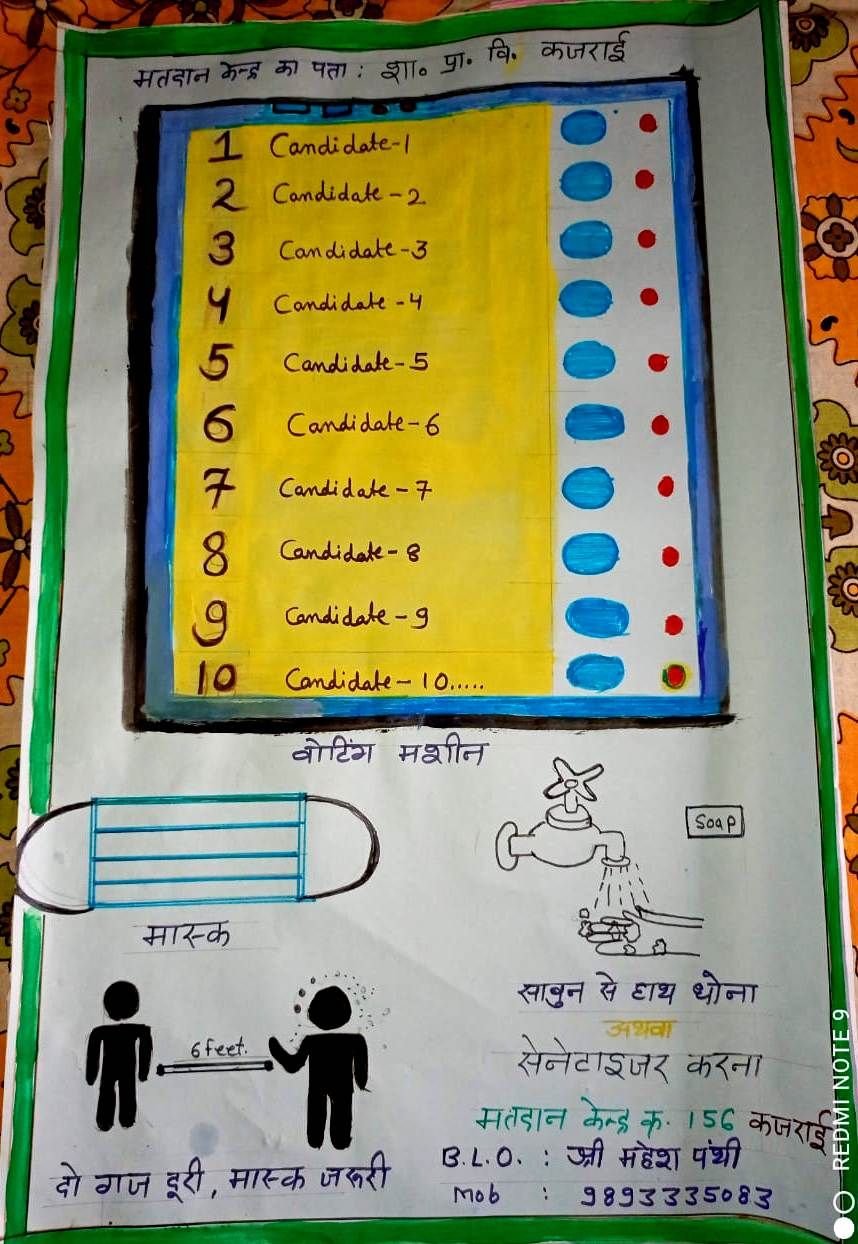 मतदान केन्द्र का पता : शा० प्रा० वि. कजराई
1 Candidate-1
2 Candidate-2
3 Candidate-3
4 Candidate-4
5 Candidate-5
6 Candidate-6
7 Candidate-7
8 Candidate-8
9 Candidate-9
10 Candidate-10.....
वोटिंग मशीन
Soap
मास्क
साबुन से हाथ धोना
अथवा
सेनेटाइजर करना
6 feet.
दो गज दूरी, मास्क जरूरी
मतदान केन्द्र क्र. 156 कजराई
B.L.O. : श्री महेश पंथी
Mob : 9893335083
REDMI NOTE 9